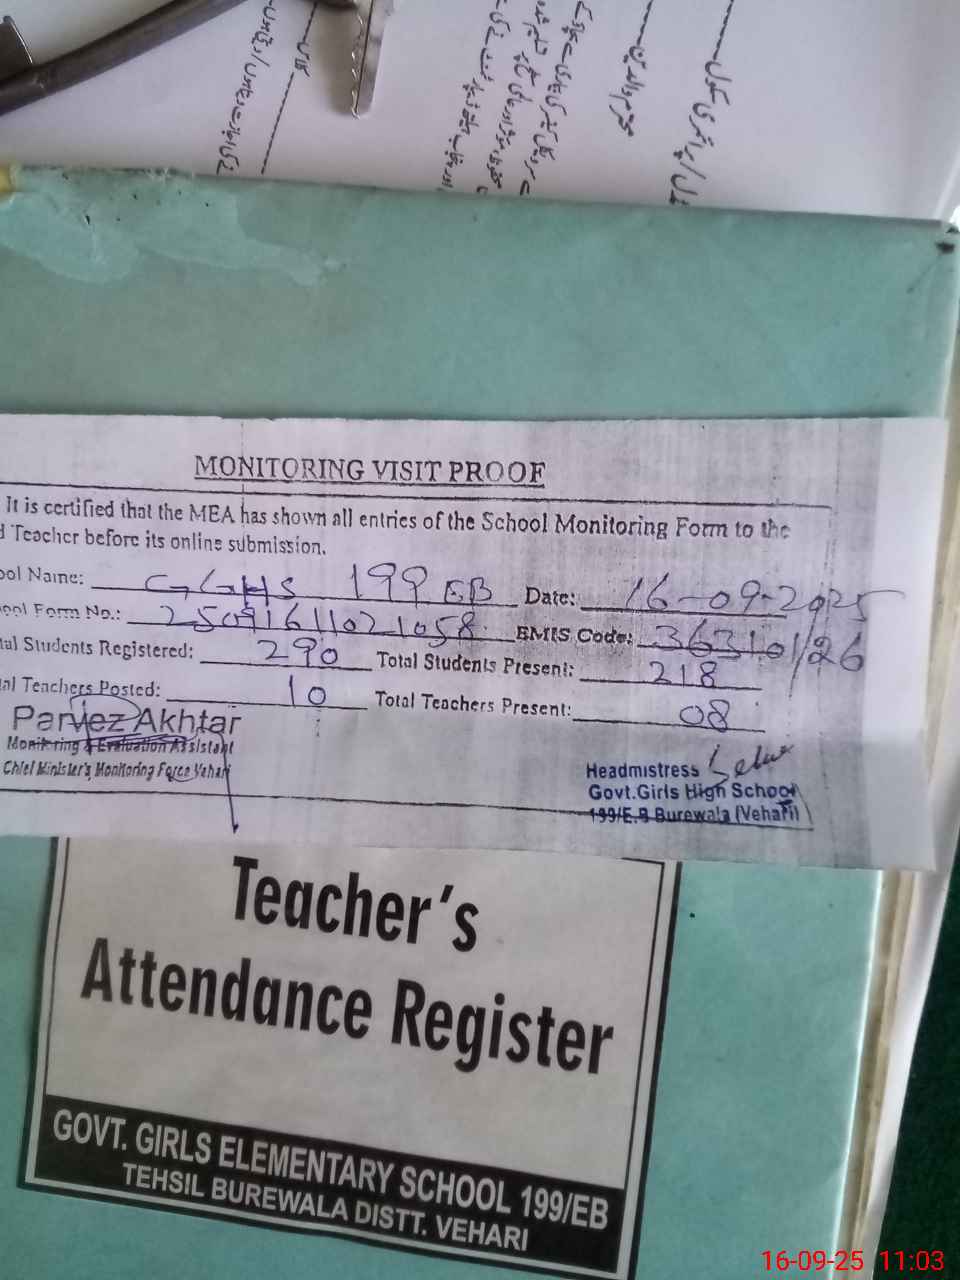 MONITORING VISIT PROOF
It is certified that the MEA has shown all entries of the School Monitoring Form to the
d Teacher before its online submission.
ool Name: GGHS 199 EB Date: 16-09-2025
ool Form No.: 2509161102 1058 EMIS Code: 36310126
tal Students Registered: 290 Total Students Present: 218
al Teachers Posted: 10 Total Teachers Present: 08
Parvez Akhtar
Monitoring & Evaluation Assistant
Chief Minister's Monitoring Force Vehari
Headmistress
Govt.Girls High School
199/E.B Burewala (Vehari)
Teacher's
Attendance Register
GOVT. GIRLS ELEMENTARY SCHOOL 199/EB
TEHSIL BUREWALA DISTT. VEHARI
16-09-25 11:03